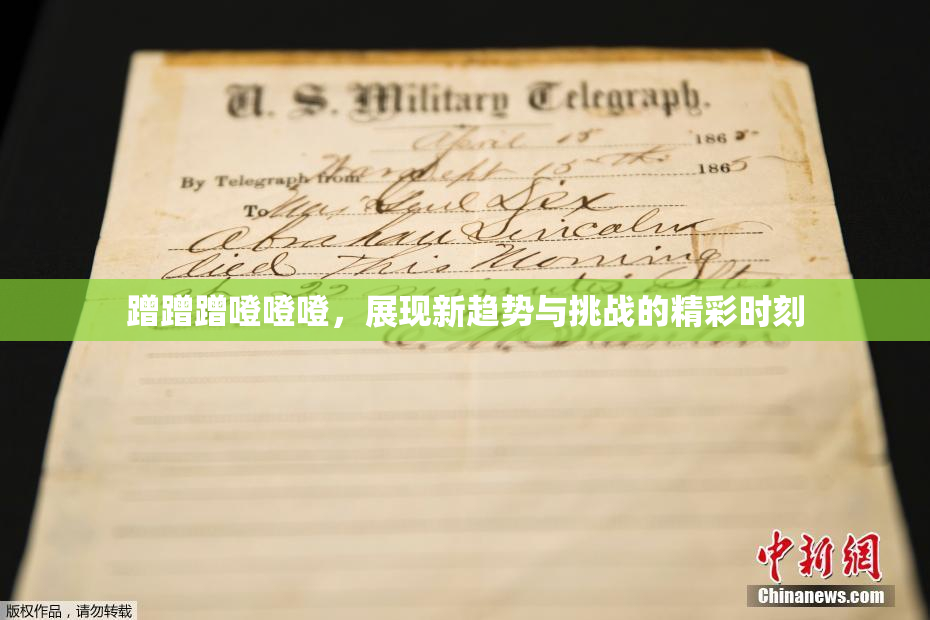 U. S. Military Telegraph.
April 15 1865
By Telegraph from War Dept 15th 1865
To Maj Genl Dix
Abraham Lincoln
died This Morning
22 minutes after
蹭蹭蹭噔噔噔，展现新趋势与挑战的精彩时刻
中新网
Chinanews.com
版权作品，请勿转载